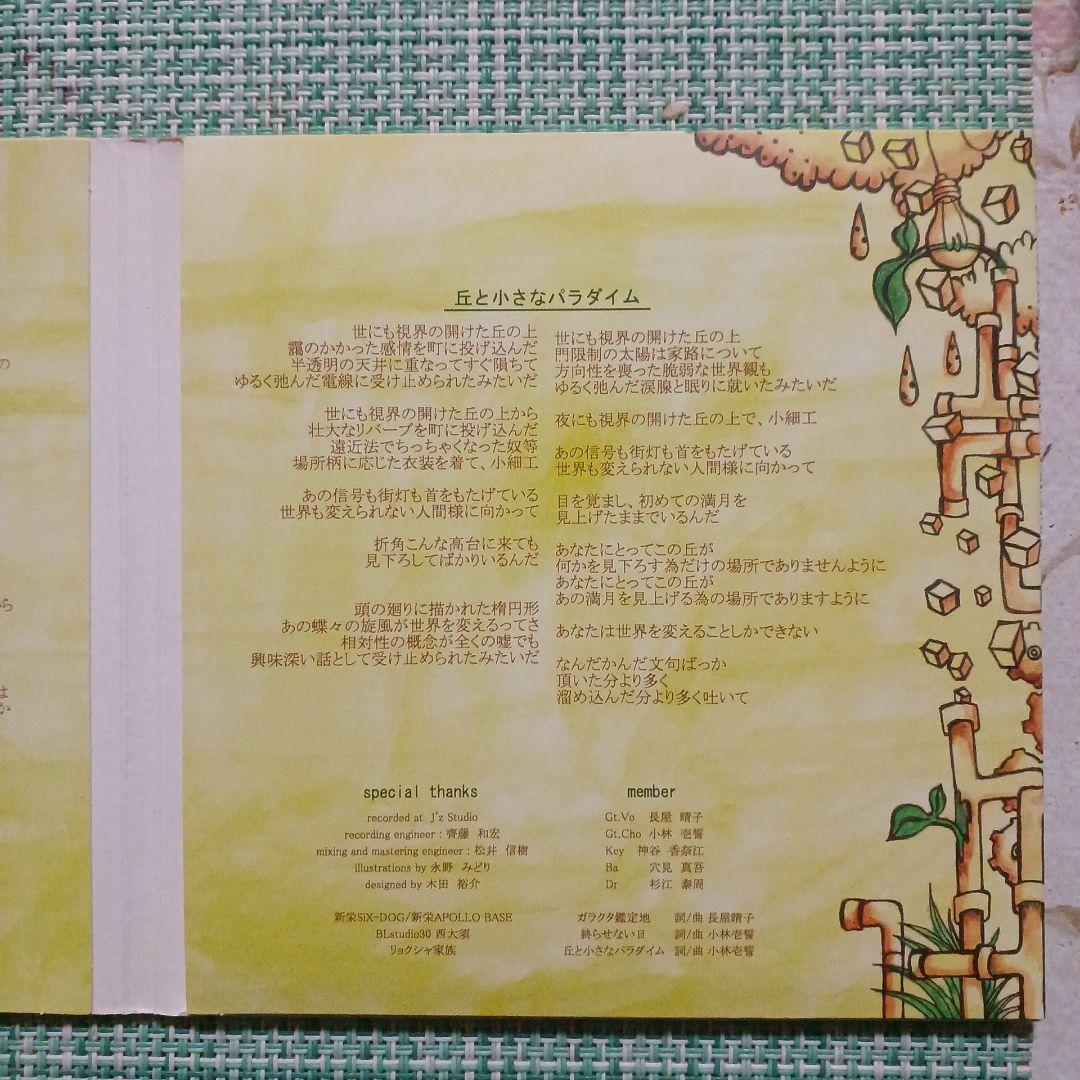 の
ら
は
か
丘と小さなパラダイム
世にも視界の開けた丘の上
靄のかかった感情を町に投げ込んだ
半透明の天井に重なってすぐ隕ちて
ゆるく弛んだ電線に受け止められたみたいだ
世にも視界の開けた丘の上から
壮大なリバーブを町に投げ込んだ
遠近法でちっちゃくなった奴等
場所柄に応じた衣装を着て、小細工
あの信号も街灯も首をもたげている
世界も変えられない人間様に向かって
折角こんな高台に来ても
見下ろしてばかりいるんだ
頭の廻りに描かれた楕円形
あの蝶々の旋風が世界を変えるってさ
相対性の概念が全くの嘘でも
興味深い話として受け止められたみたいだ
世にも視界の開けた丘の上
門限制の太陽は家路について
方向性を喪った脆弱な世界観も
ゆるく弛んだ涙腺と眠りに就いたみたいだ
夜にも視界の開けた丘の上で、小細工
あの信号も街灯も首をもたげている
世界も変えられない人間様に向かって
目を覚まし、初めての満月を
見上げたままでいるんだ
あなたにとってこの丘が
何かを見下ろす為だけの場所でありませんように
あなたにとってこの丘が
あの満月を見上げる為の場所でありますように
あなたは世界を変えることしかできない
なんだかんだ文句ばっか
頂いた分より多く
溜め込んだ分より多く吐いて
special thanks
recorded at J'z Studio
recording engineer : 齊藤 和宏
mixing and mastering engineer : 松井 信樹
illustrations by 永野 みどり
designed by 木田 裕介
新栄SiX-DOG/新栄APOLLO BASE
BLstudio30 西大須
リョクシャ家族
member
Gt.Vo 長屋 晴子
Gt.Cho 小林 壱誓
Key 神谷 香奈江
Ba 穴見 真吾
Dr 杉江 泰周
ガラクタ鑑定地 詞/曲 長屋晴子
終らせない日 詞/曲 小林壱誓
丘と小さなパラダイム 詞/曲 小林壱誓